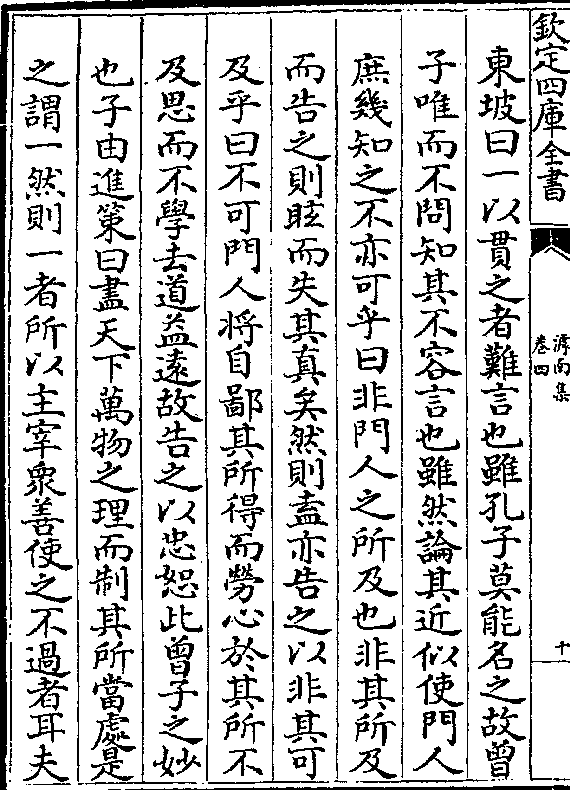 欽定四庫全書
滹南集
卷四
十
東坡曰一以貫之者難言也雖孔子莫能名之故曾
子唯而不問知其不容言也雖然論其近似使門人
庶幾知之不亦可乎曰非門人之所及也非其所及
而告之則眩而失其真矣然則盍亦告之以非其可
及乎曰不可門人將自鄙其所得而勞心於其所不
及思而不學去道益遠故告之以忠恕此曾子之妙
也子由進策曰盡天下萬物之理而制其所當處是
之謂一然則一者所以主宰衆善使之不過者耳夫